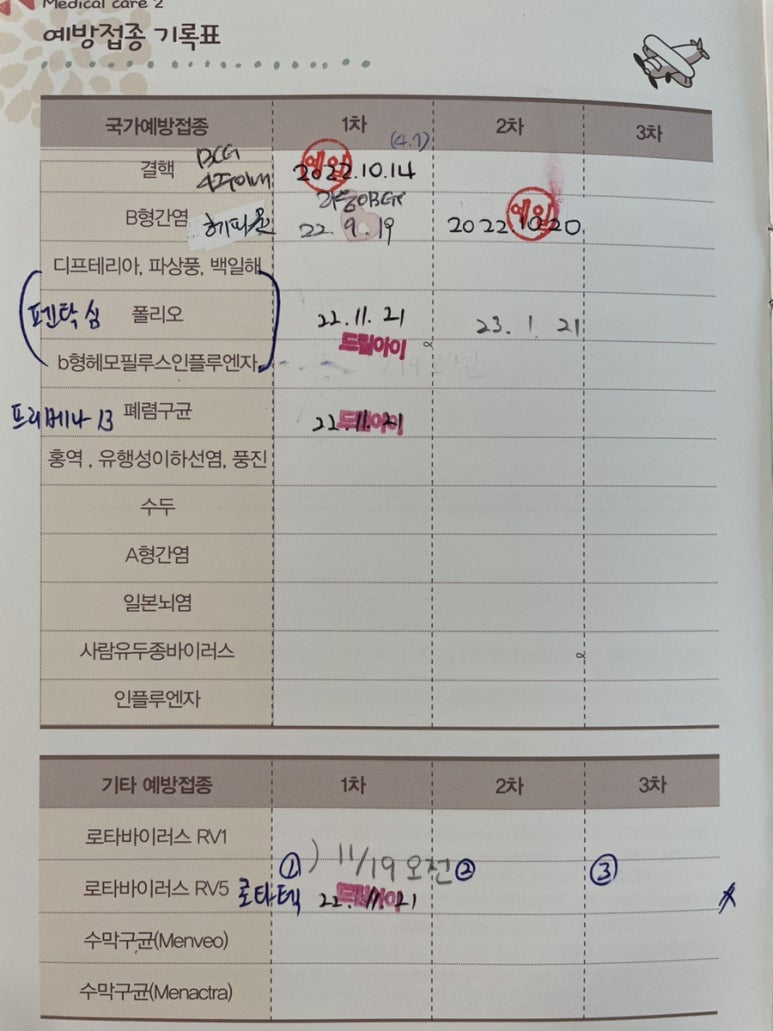 Medical care 2
예방접종 기록표
국가예방접종 1차 2차 3차
(4.1)
결핵 BCG 4주이내 예일 2022.10.14
B형간염 헤파뮨 22.9.19 예일 2022.10.20.
디프테리아, 파상풍, 백일해
펜탁심 폴리오 22.11.21 23.1.21
드림아이
b형헤모필루스인플루엔자
프리베나13 폐렴구균 22.11.21 드림아이
홍역, 유행성이하선염, 풍진
수두
A형간염
일본뇌염
사람유두종바이러스
인플루엔자
기타 예방접종 1차 2차 3차
로타바이러스 RV1
① ) 11/19 오전 ② ③
로타바이러스 RV5 로타텍 22.11.21 드림아이
수막구균(Menveo)
수막구균(Menactra)